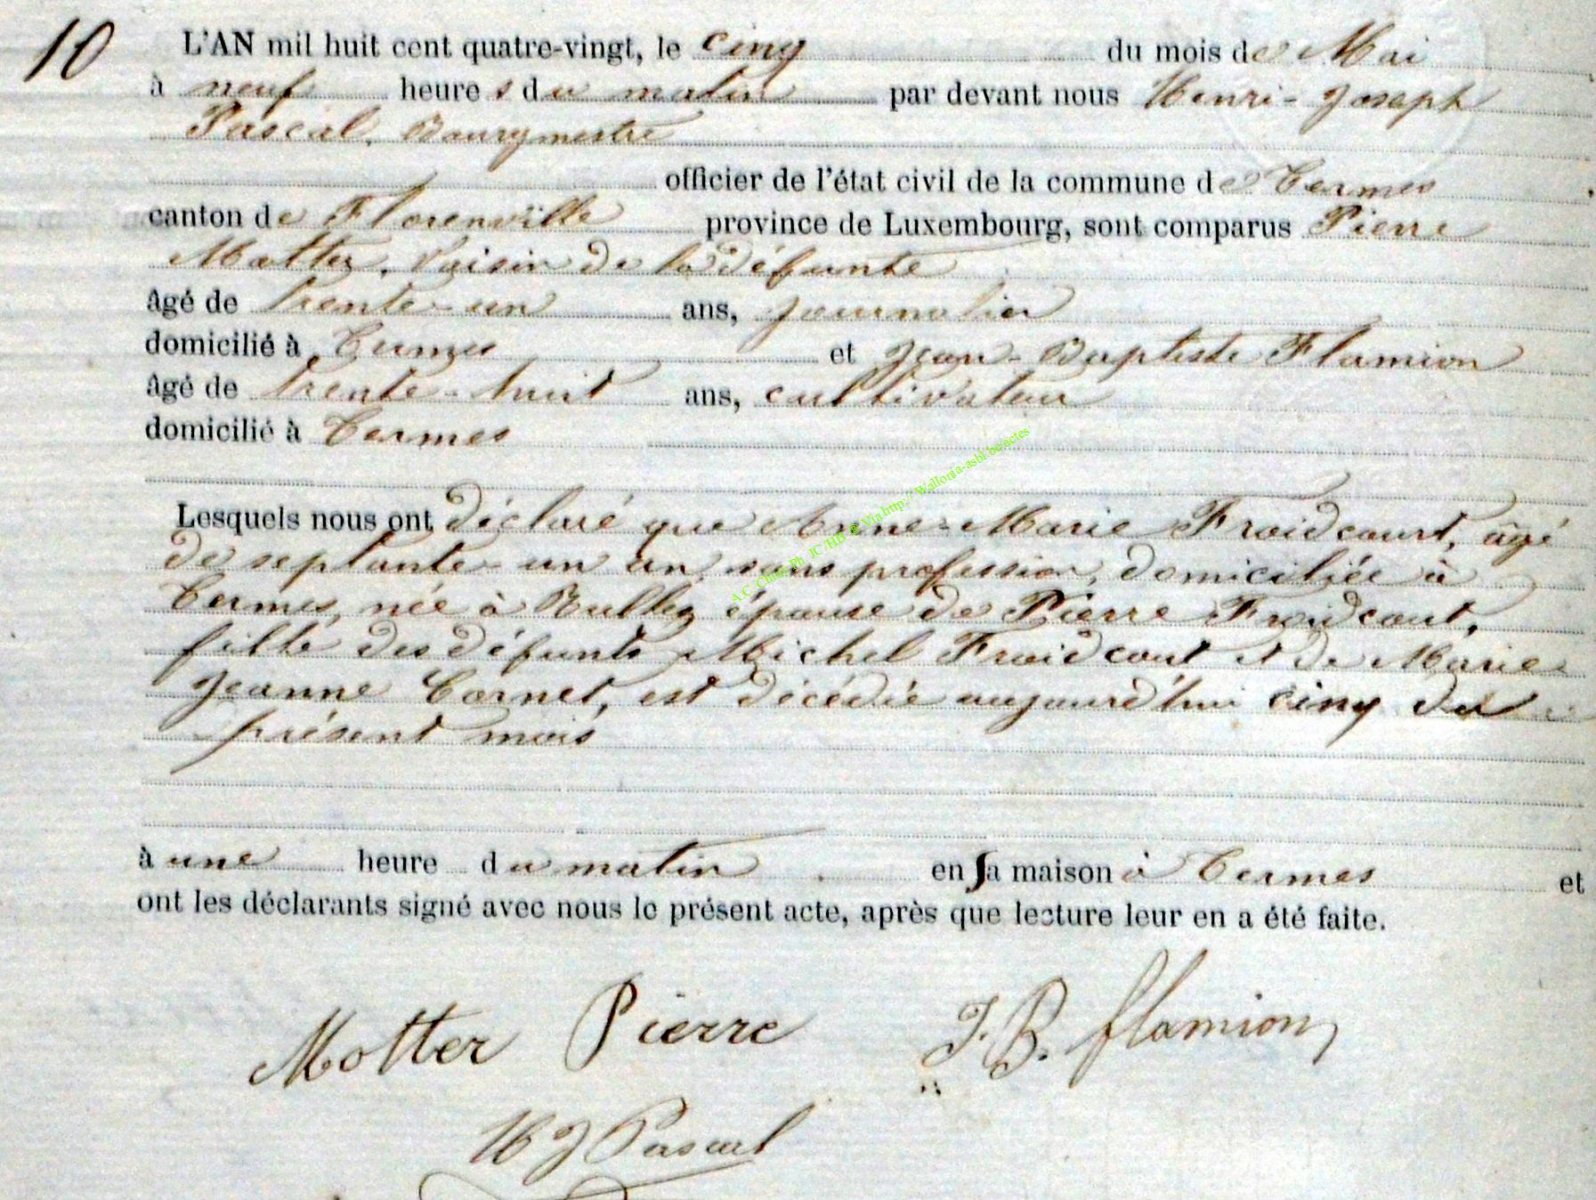 10
L'AN mil huit cent quatre-vingt, le cinq du mois de Mai
à neuf heures du matin par devant nous Henri-Joseph
Pascal, Bourgmestre
officier de l'état civil de la commune de Termes
canton de Florenville province de Luxembourg, sont comparus Pierre
Motter, Voisin de la défunte
âgé de trente-un ans, journalier
domicilié à Termes et Jean-Baptiste Flamion
âgé de trente-huit ans, cultivateur
domicilié à Termes
Lesquels nous ont déclaré que Anne-Marie Froidcourt, âgé
de septante-un an, sans profession, domiciliée à
Termes, née à Rulles, épouse de Pierre Froidcourt,
fille des défunts Michel Froidcourt et de Marie-
Jeanne Cornet, est décédée aujourd'hui cinq du
présent mois
à une heure du matin en sa maison à Termes et
ont les déclarants signé avec nous le présent acte, après que lecture leur en a été faite.
Motter Pierre J. B. flamion
HJ Pascal